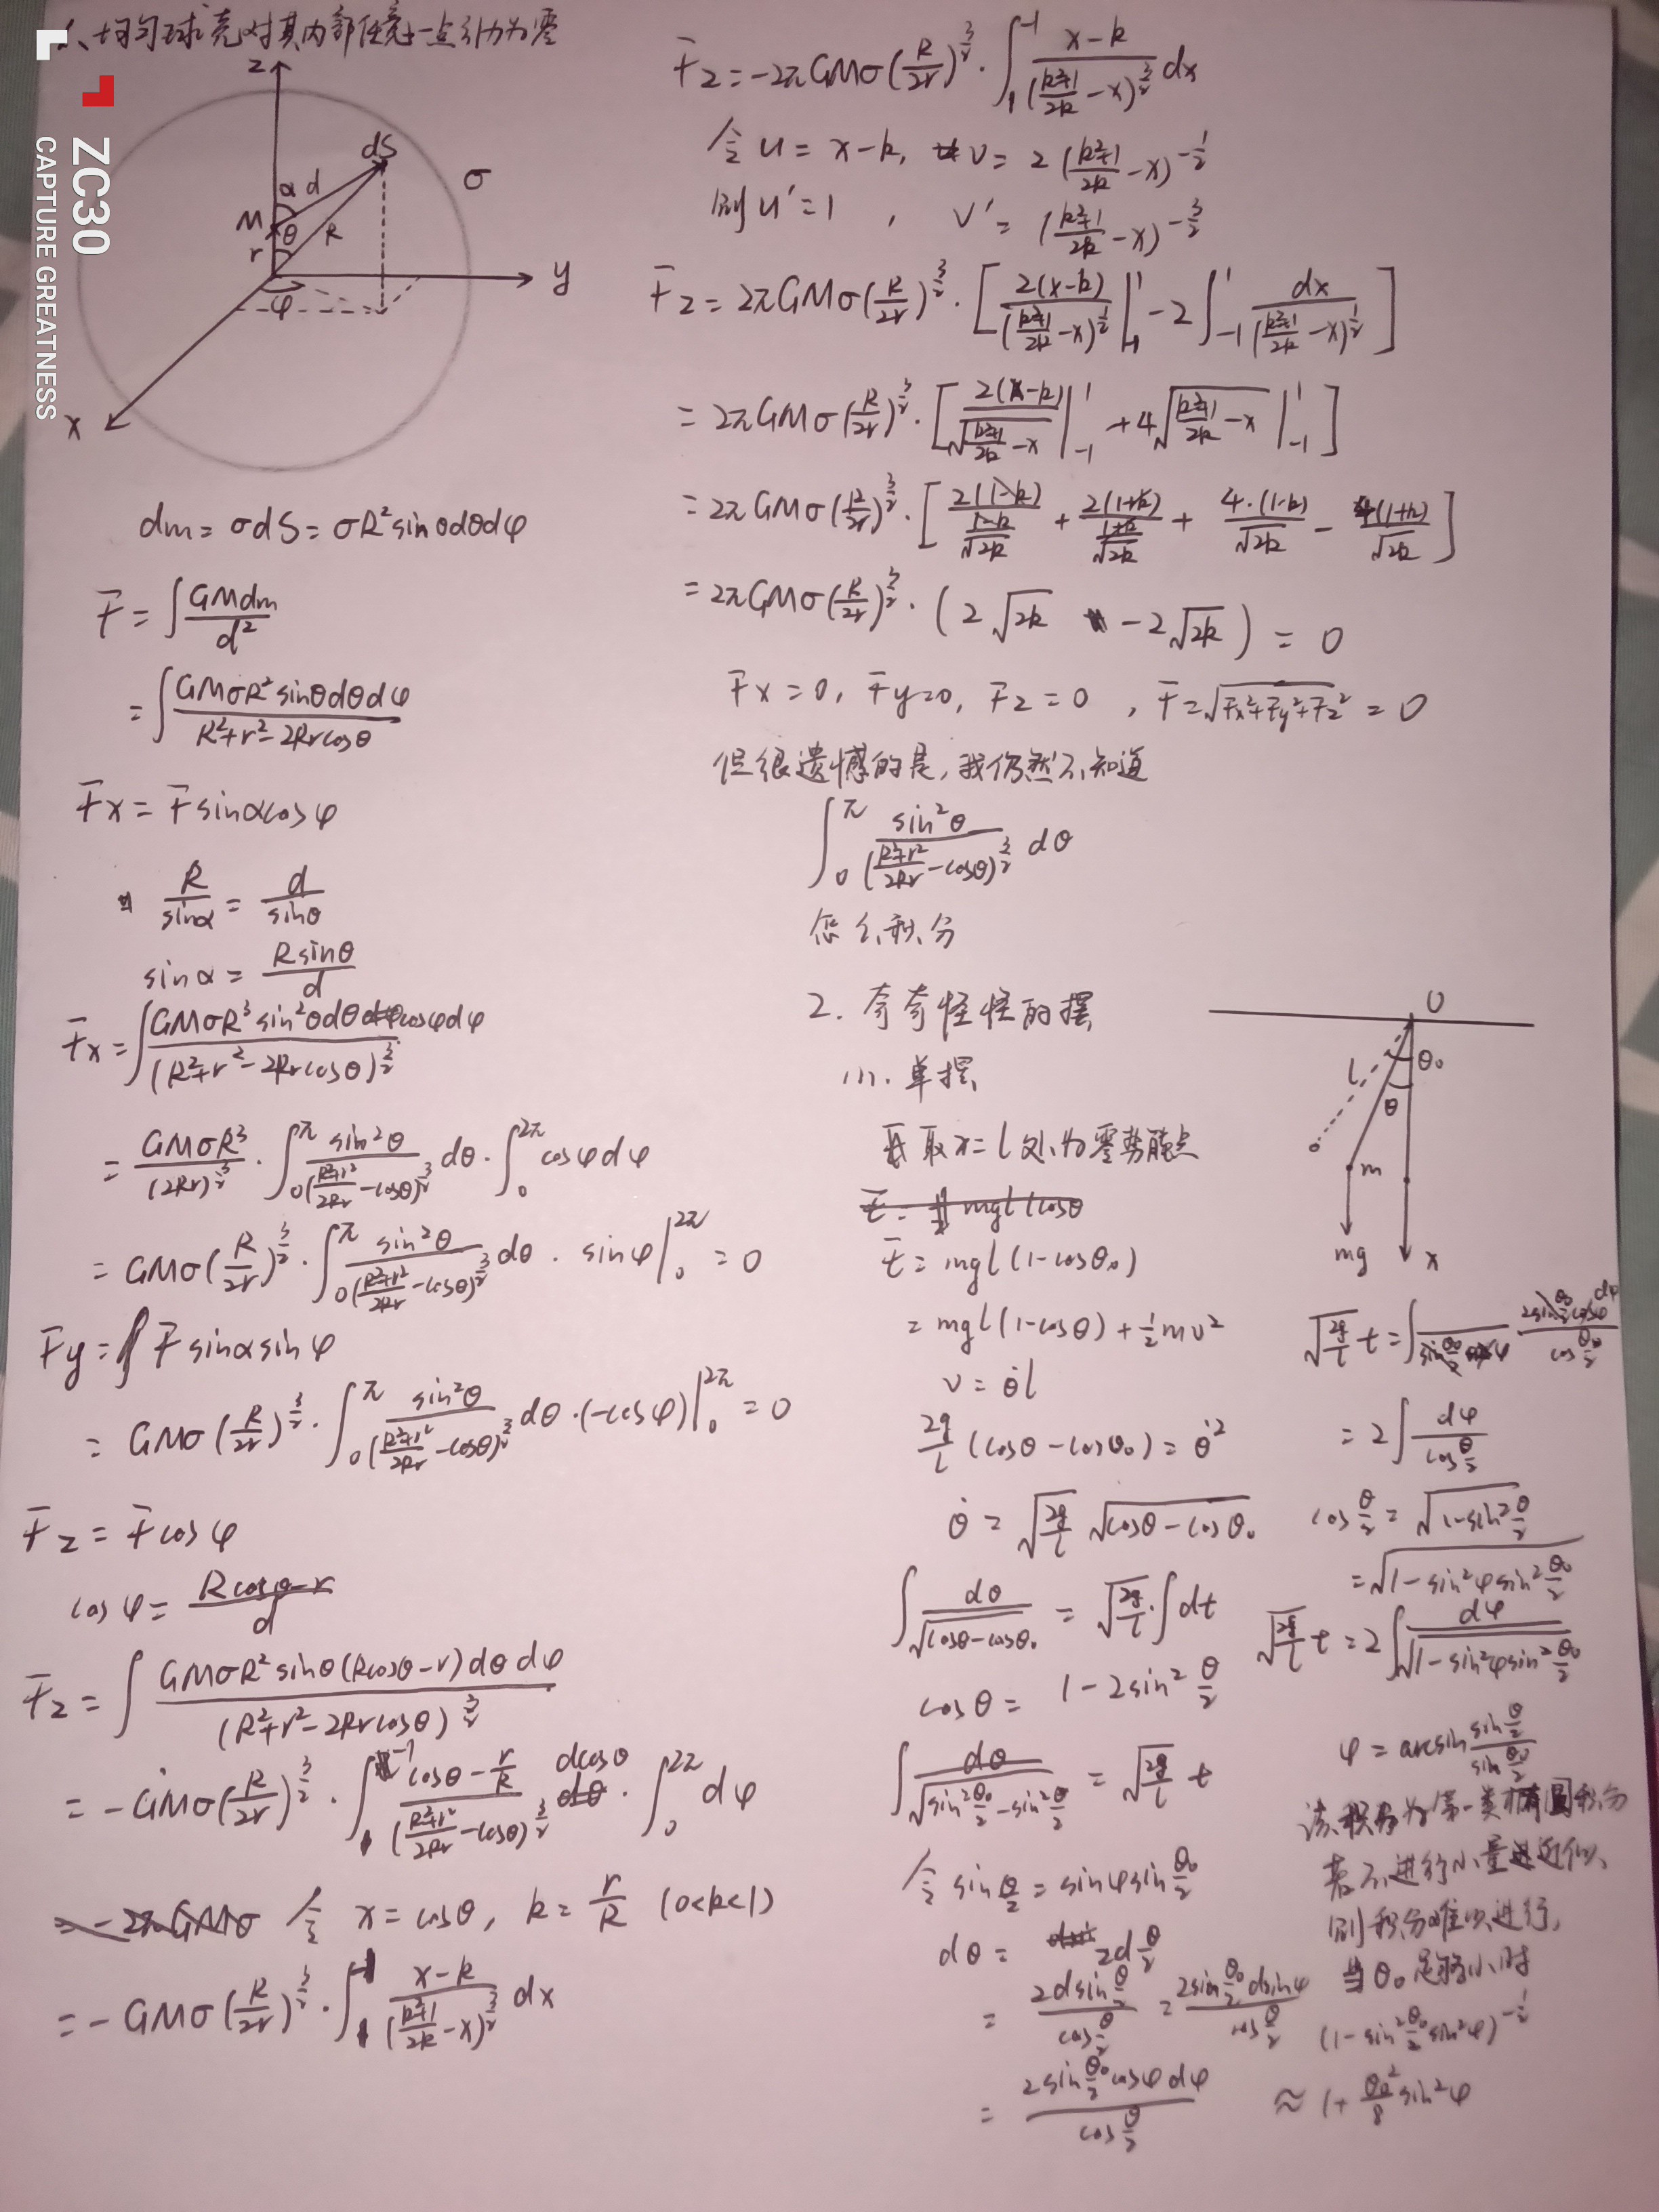 1、均匀球壳对其内部任意一点引力为零
z
dS
σ
α d
M
θ R
r
y
φ
x
ZC30
CAPTURE GREATNESS
dm = σdS = σR²sinθdθdφ
F = ∫ GMdm / d²
= ∫ GMσR²sinθdθdφ / (R²+r²-2Rrcosθ)
Fx = F sinαcosφ
R/sinα = d/sinθ
sinα = Rsinθ/d
Fx = ∫ GMσR³sin²θdθcosφdφ / (R²+r²-2Rrcosθ)^(3/2)
= GMσR³/(2Rr)^(3/2) · ∫₀^π sin²θ/((R²+r²)/2Rr - cosθ)^(3/2) dθ · ∫₀^2π cosφdφ
= GMσ(R/2r)^(3/2) · ∫₀^π sin²θ/((R²+r²)/2Rr - cosθ)^(3/2) dθ · sinφ|₀^2π = 0
Fy = ∫ F sinαsinφ
= GMσ(R/2r)^(3/2) · ∫₀^π sin²θ/((R²+r²)/2Rr - cosθ)^(3/2) dθ · (-cosφ)|₀^2π = 0
Fz = F cosφ
cosφ = (Rcosθ-r)/d
Fz = ∫ GMσR²sinθ(Rcosθ-r)dθdφ / (R²+r²-2Rrcosθ)^(3/2)
= -GMσ(R/2r)^(3/2) · ∫₁^-1 (cosθ - r/R)/((R²+r²)/2Rr - cosθ)^(3/2) dcosθ · ∫₀^2π dφ
令 x = cosθ, k = r/R (0<k<1)
= -GMσ(R/2r)^(3/2) · ∫₁^-1 (x-k)/((k²+1)/2k - x)^(3/2) dx
Fz = -2πGMσ(R/2r)^(3/2) · ∫₁^-1 (x-k)/((k²+1)/2k - x)^(3/2) dx
令 u = x-k, v = 2((k²+1)/2k - x)^(-1/2)
则 u' = 1 , v' = ((k²+1)/2k - x)^(-3/2)
Fz = 2πGMσ(R/2r)^(3/2) · [2(x-k)/((k²+1)/2k - x)^(1/2) |₋₁^1 - 2∫₋₁^1 dx/((k²+1)/2k - x)^(1/2)]
= 2πGMσ(R/2r)^(3/2) · [2(x-k)/√((k²+1)/2k - x) |₋₁^1 + 4√((k²+1)/2k - x) |₋₁^1]
= 2πGMσ(R/2r)^(3/2) · [2(1-k)/((1-k)/√2k) + 2(1+k)/((1+k)/√2k) + 4·(1-k)/√2k - 4(1+k)/√2k]
= 2πGMσ(R/2r)^(3/2) · (2√2k - 2√2k) = 0
Fx=0, Fy=0, Fz=0 , F=√(Fx²+Fy²+Fz²) = 0
但很遗憾的是,我仍然不知道
∫₀^π sin²θ/((R²+r²)/2Rr - cosθ)^(3/2) dθ
怎么积分
2. 奇奇怪怪的摆
(1). 单摆
取x=l处为零势能点
E = mgl(1-cosθ₀)
= mgl(1-cosθ) + ½mv²
v = θ̇l
2g/l (cosθ - cosθ₀) = θ̇²
θ̇ = √(2g/l) √(cosθ - cosθ₀)
∫ dθ/√(cosθ-cosθ₀) = √(2g/l) · ∫dt
cosθ = 1-2sin²θ/2
∫ dθ/√(sin²θ₀/2 - sin²θ/2) = √(2g/l) t
令 sinθ/2 = sinφsinθ₀/2
dθ = 2dθ/2
= 2dsinθ/2 / cosθ/2 = 2sinθ₀/2 dsinφ / cosθ/2
= 2sinθ₀/2 cosφdφ / cosθ/2
O
l
θ₀
θ
m
mg
x
√(2g/l) t = ∫ 1/(sinθ₀/2 cosφ) · 2sinθ₀/2 cosφ dφ / cosθ/2
= 2∫ dφ/cosθ/2
cosθ/2 = √(1-sin²θ/2)
= √(1-sin²φsin²θ₀/2)
√(2g/l) t = 2∫ dφ/√(1-sin²φsin²θ₀/2)
φ = arcsin (sinθ/2 / sinθ₀/2)
该积分为第一类椭圆积分
若不进行小量近似,
则积分难以进行,
当θ₀足够小时
(1-sin²θ₀/2 sin²φ)^(-1/2)
≈ 1+ θ₀²/8 sin²φ